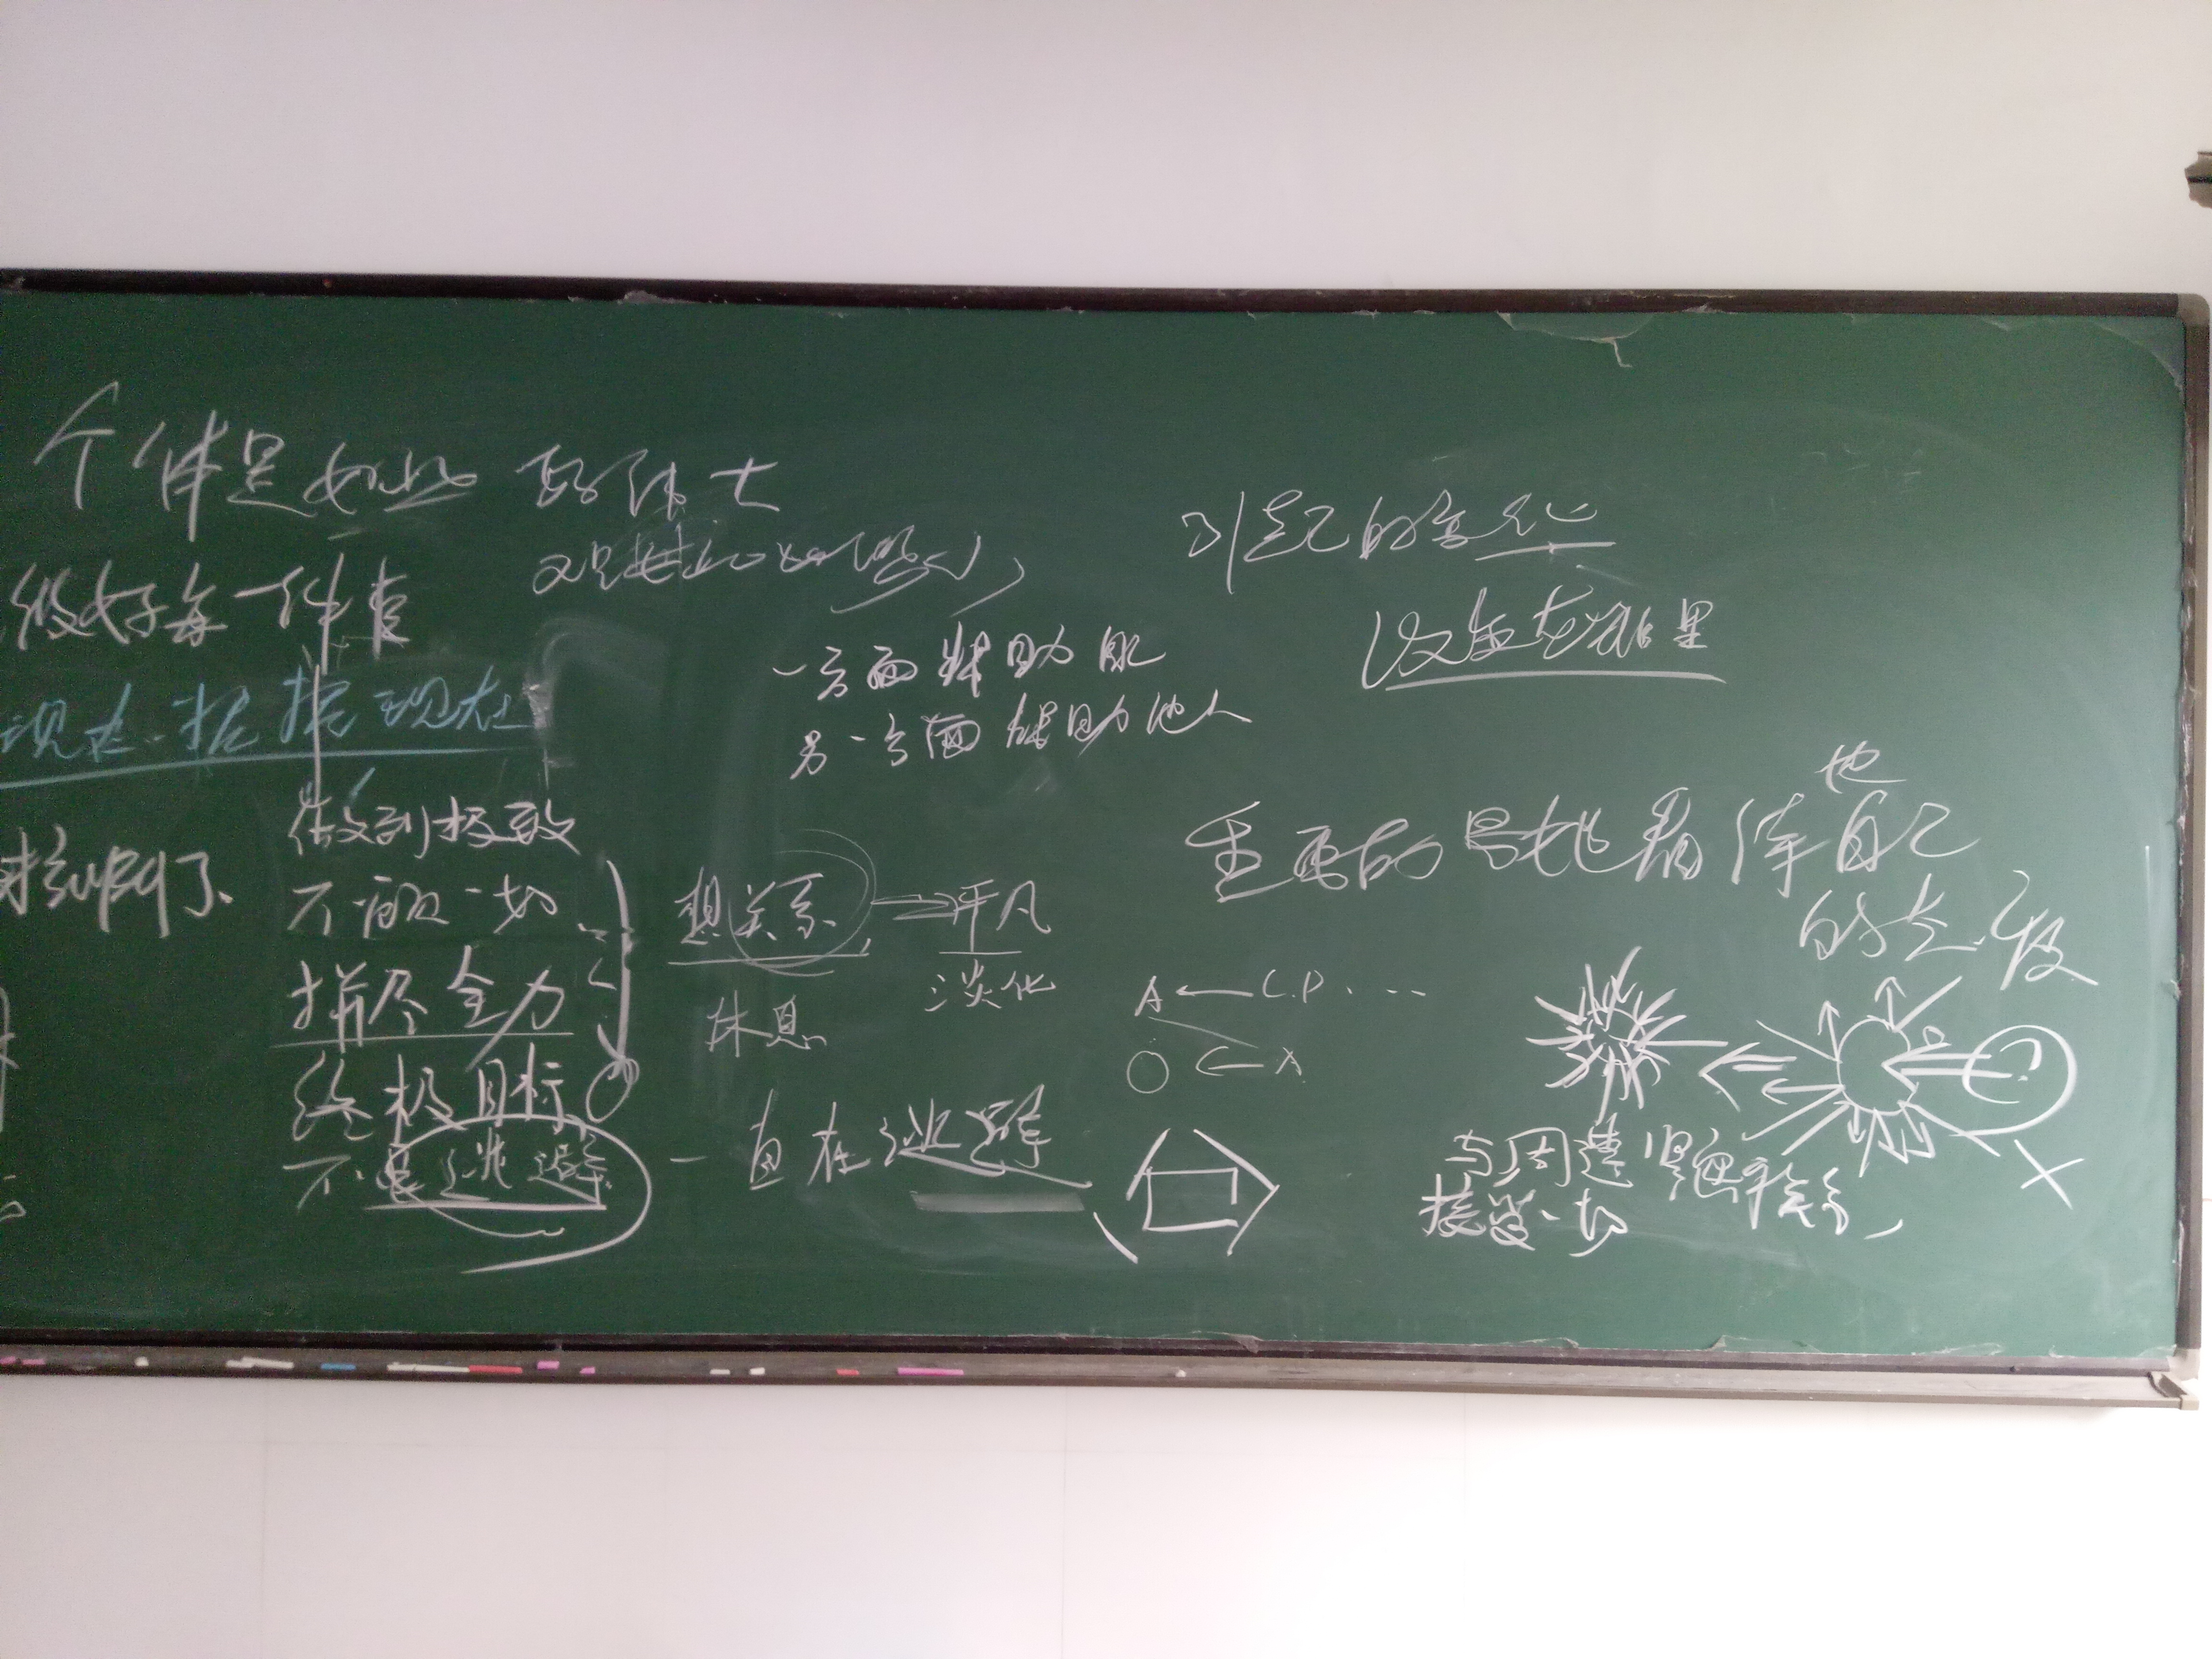 个体是如此的伟大
又是如此的渺小
做好每一件事
现在.把握现在
做到极致
不顾一切
拼尽全力
终极目标
不是逃避
一方面帮助
另一方面帮助他人
想关系
平凡
淡化
休息
A ← C.P. ...
O ← A
自在逃避
引起的变化
没在
重要的是 看待自己
他
的态度
与周遭紧密
接受一切